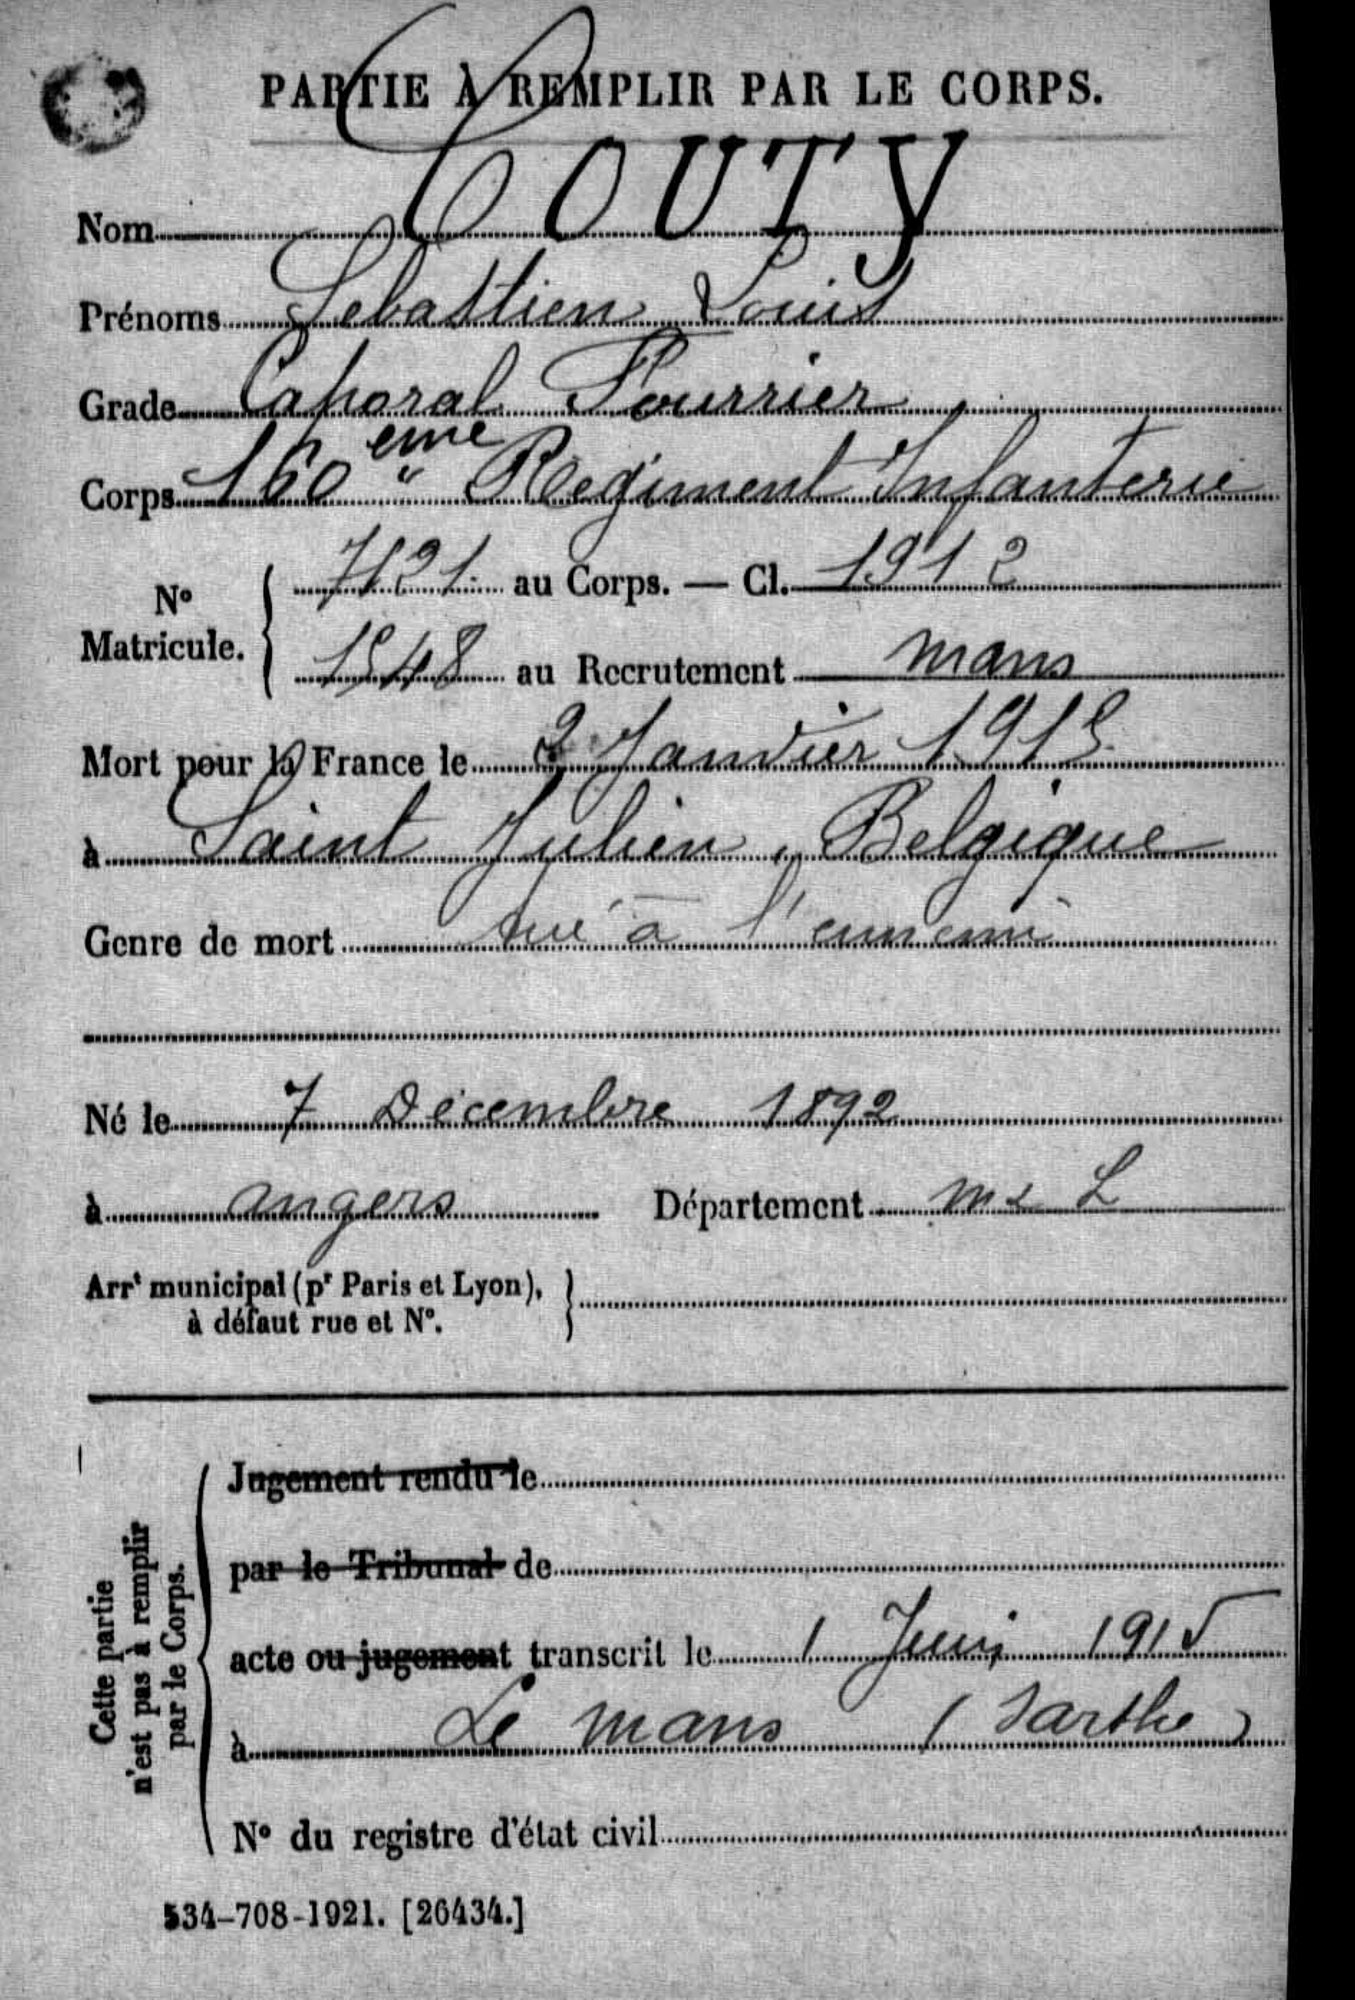 PARTIE À REMPLIR PAR LE CORPS.
Nom COUTY
Prénoms Sebastien Louis
Grade Caporal Fourrier
Corps 160 eme Regiment Infanterie
N° Matricule. 7121 au Corps. — Cl. 1912
1548 au Recrutement mans
Mort pour la France le 2 Janvier 1915
à Saint Julien, Belgique
Genre de mort tué à l'ennemi
Né le 7 Decembre 1892
à angers Département M & L
Arrt municipal (pr Paris et Lyon),
à défaut rue et N°.
Cette partie
n'est pas à remplir
par le Corps.
Jugement rendu le
par le Tribunal de
acte ou jugement transcrit le 1 Juin 1915
à Le mans (Sarthe)
N° du registre d'état civil
534-708-1921. [26434.]